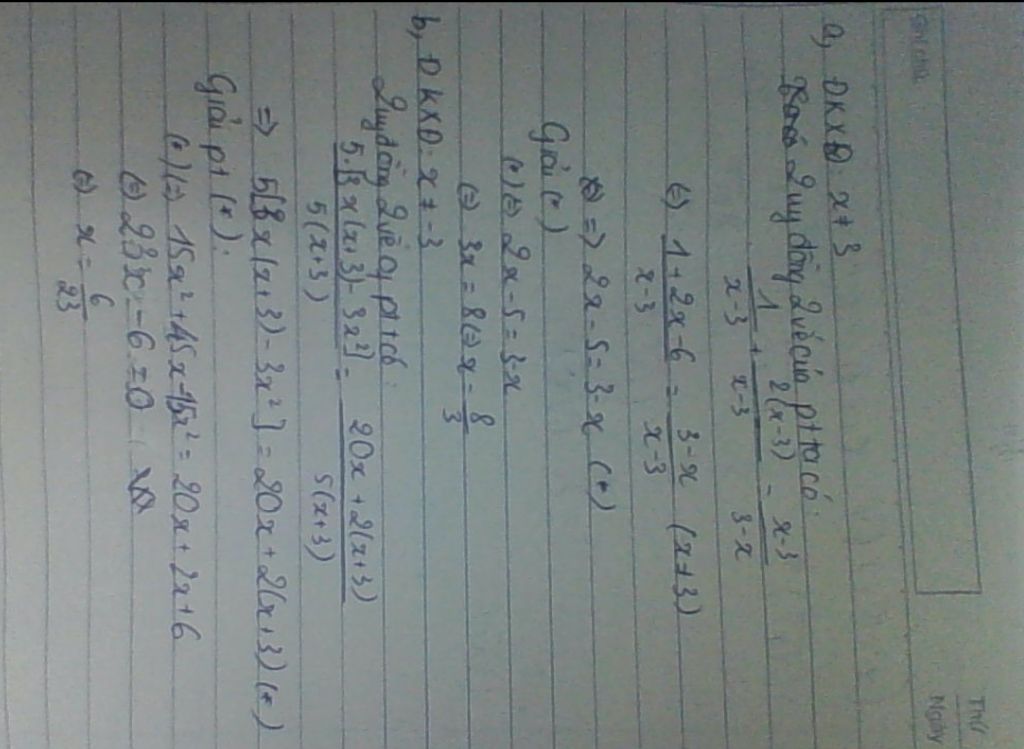 Thứ
Ngày
a, ĐKXĐ: x ≠ 3
Quy đồng 2 vế của pt ta có:
1/(x-3) + 2(x-3)/(x-3) = (x-3)/(3-x)
(=) (1+2x-6)/(x-3) = (3-x)/(x-3) (x≠3)
=> 2x-5=3-x (*)
Giải (*)
(*) (=) 2x-5=3-x
(=) 3x=8 (=) x=8/3
b, ĐKXĐ: x ≠ -3
Quy đồng 2 vế of pt có:
5.[3x(x+3)-3x²]/5(x+3) = 20x+2(x+3)/5(x+3)
=> 5[3x(x+3)-3x²]=20x+2(x+3) (*)
Giải pt (*):
(*) (=) 15x²+45x-15x²=20x+2x+6
(=) 23x-6=0
(=) x=6/23